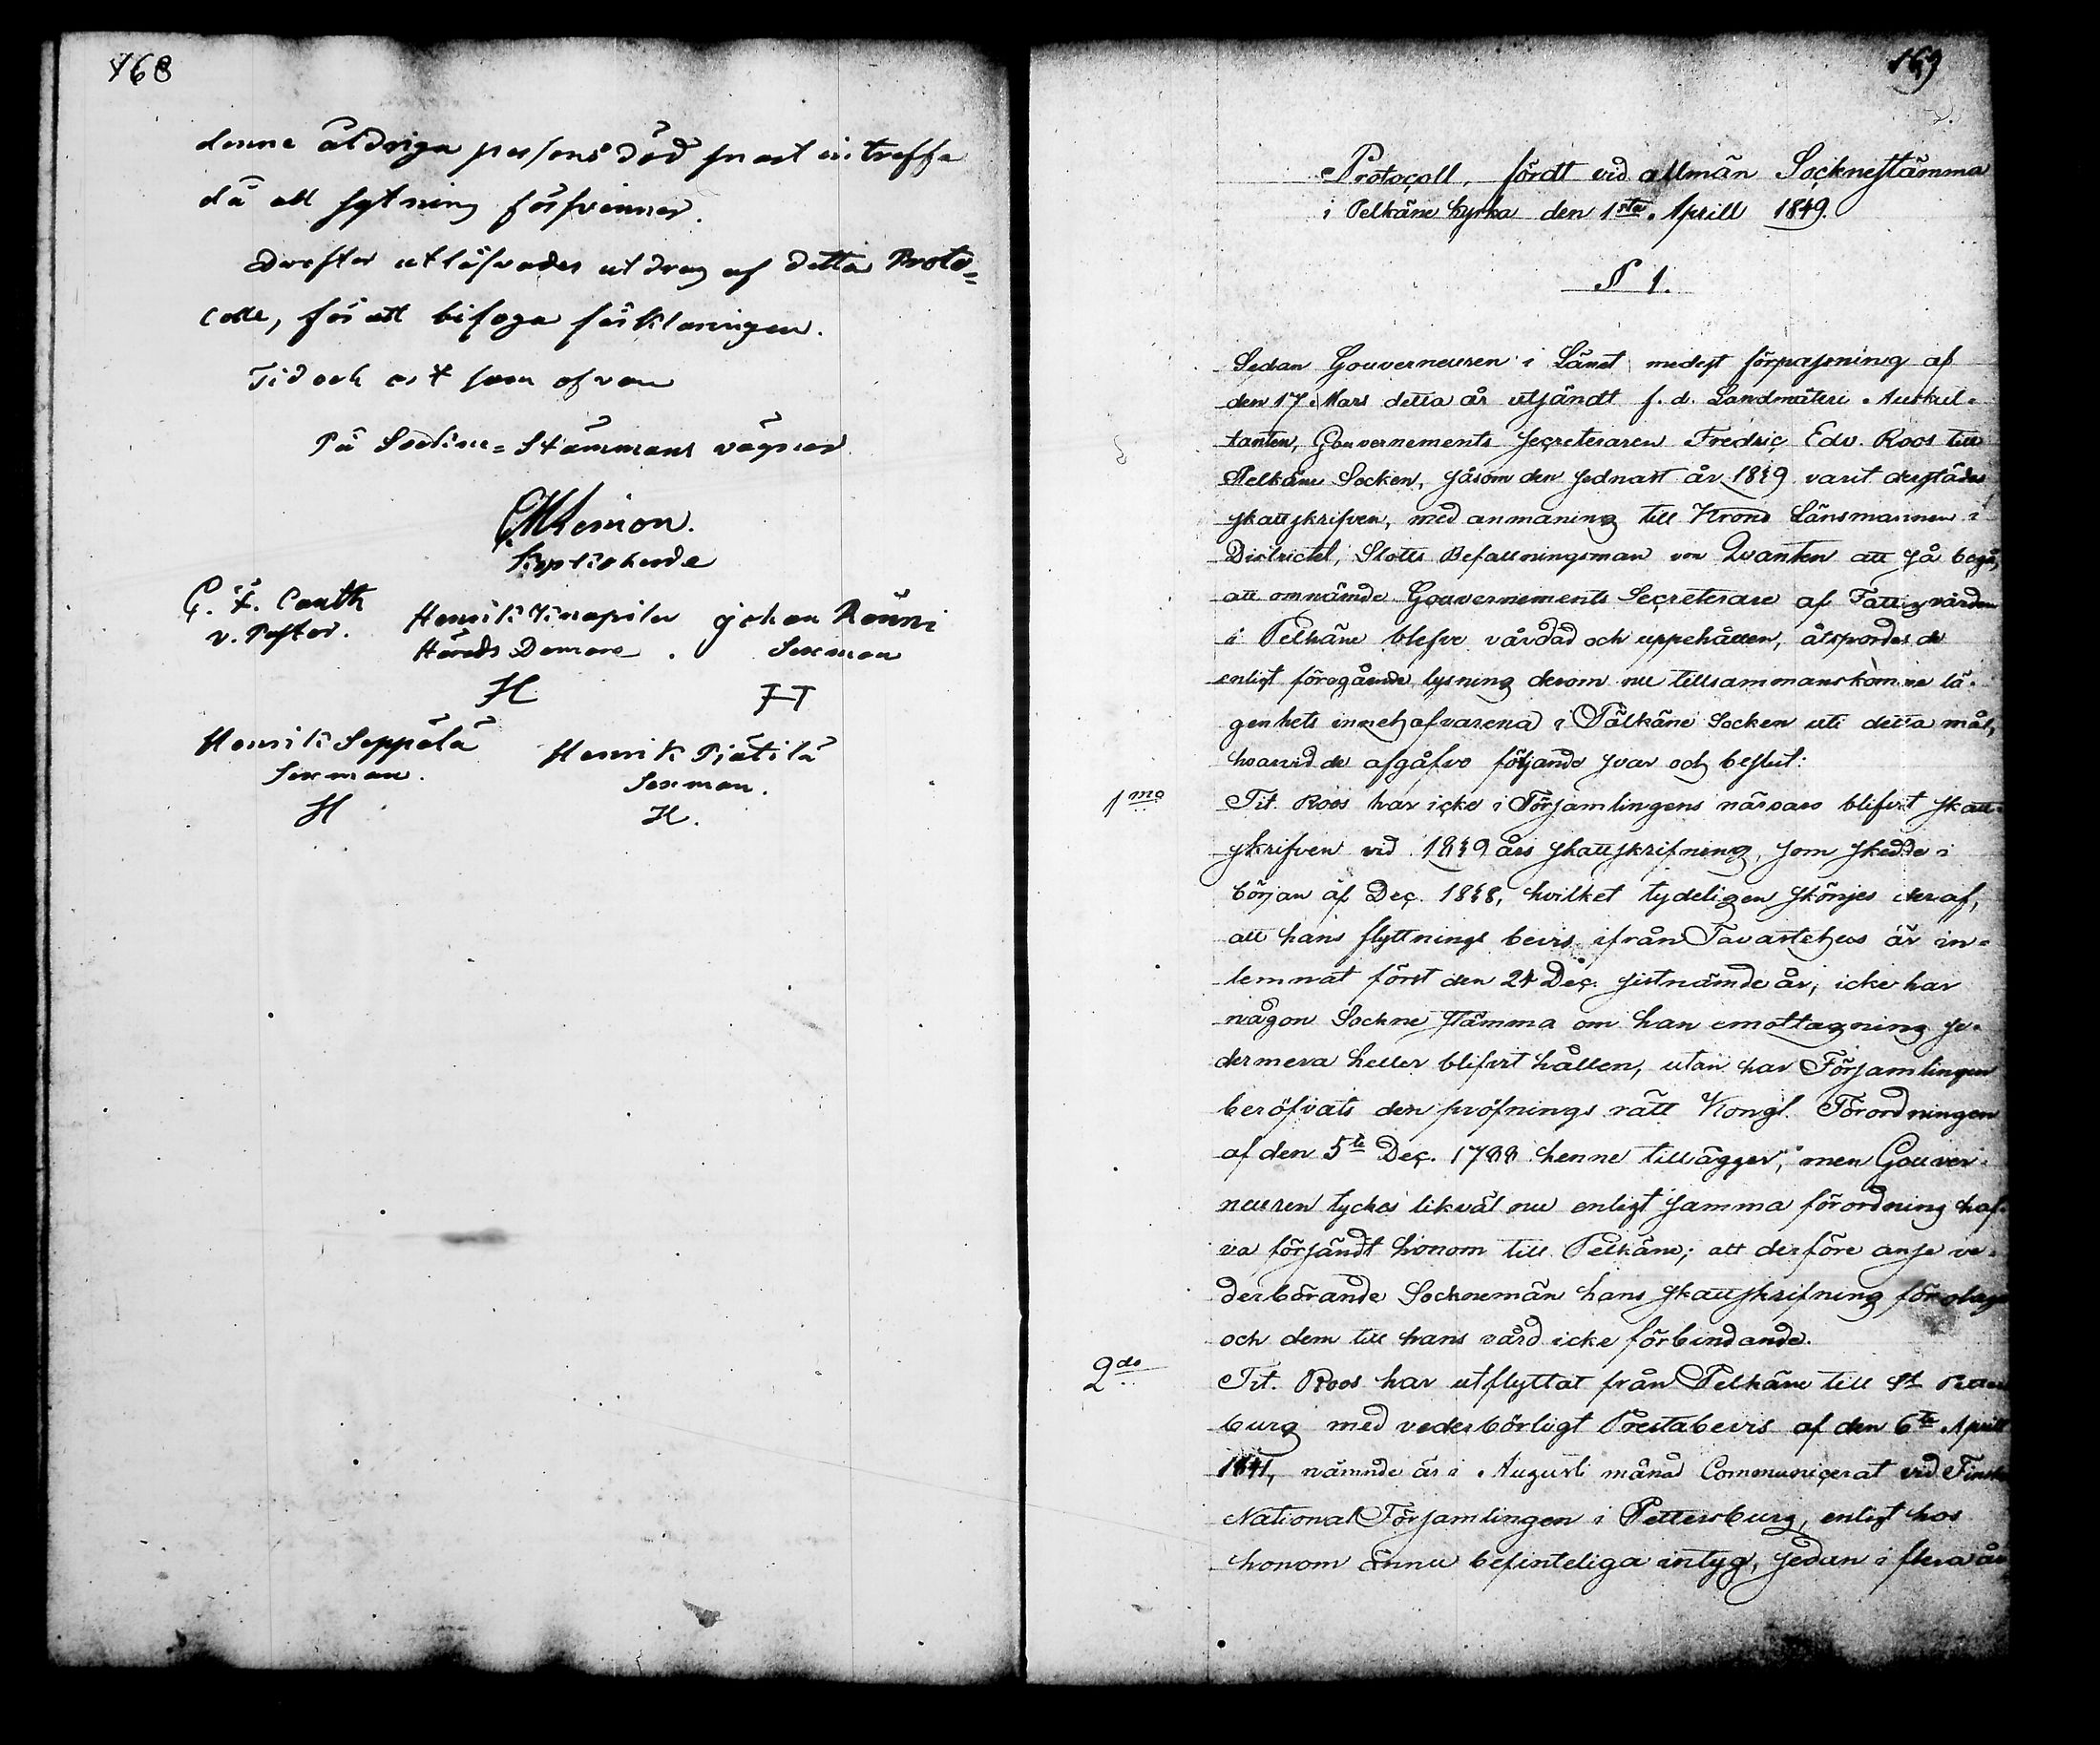 168
denne åldriga persons död snart intreffa
då all sytning försvinner.
Derefter utlöfvades utdrag af detta Proto=
coll, för att bifoga förklaringen.
Tid och ort som ofvan
På Sockne=Stämmans vägnar
Kyrkoherde
G. F. Canth
v. Pastor.
Henrik Knapila
Härads Domare
H
Johan Rönni
Sexman
Henrik Seppälä
Sexman.
H
Henrik Pjätilä
Sexman.
H.
169
Protocoll, fördt vid allmän Socknestämma
i Pelkäne kyrka den 1sta Aprill 1849.
§ 1.
Sedan Gouverneuren i Länet medest förpassning af
den 17 Mars detta år utsändt f. d. Landmäteri Auskul-
tanten, Gouvernements Secreteraren Fredric Edv. Roos till
Pelkäne Socken, såsom den sednast år 1849 varit derstädes
skattskrifven, med anmaning till Krono Länsmannen i
Districtet, Slotts Befallningsman von Qvanten att så begå,
att omnämde Gouvernements Secreterare af Fattigvården
i Pelkäne blefve vårdad och uppehållen, åtspordes de
enligt föregående lysning derom nu tillsammanskomne lä-
genhets innehafvarena i Pälkäne Socken uti detta mål,
hvarvid de afgåfvo följande svar och beslut:
1mo Tit. Roos har icke i Församlingens närvaro blifvit skatt-
skrifven vid 1849 års skattskrifning, som skedde i
början af Dec. 1848, hvilket tydeligen skönjes deraf,
att hans flyttnings bevis ifrån Tavastehus är in-
lemnat först den 24 Dec. sistnämde år, icke har
någon Sockne stämma om han emottagning se-
dermera heller blifvit hållen, utan har Församlingen
beröfvats den pröfnings rätt Kongl. Förordningen
af den 5te Dec. 1788 henne tillägger, men Gouver-
neuren tyckes likväl nu enligt samma förordning haf-
va försändt honom till Pelkäne; att derföre anse ve-
derbörande Socknemän hans skattskrifning för olaga
och dem till hans vård icke förbindande.
2do Tit. Roos har utflyttat från Pelkäne till St Petters
burg med vederbörligt Prestabevis af den 6te Aprill
1841, nämnde år i Augusti månad Communicerat vid Finska
National Församlingen i Pettersburg, enligt hos
honom ännu befinteliga intyg, sedan i flera år